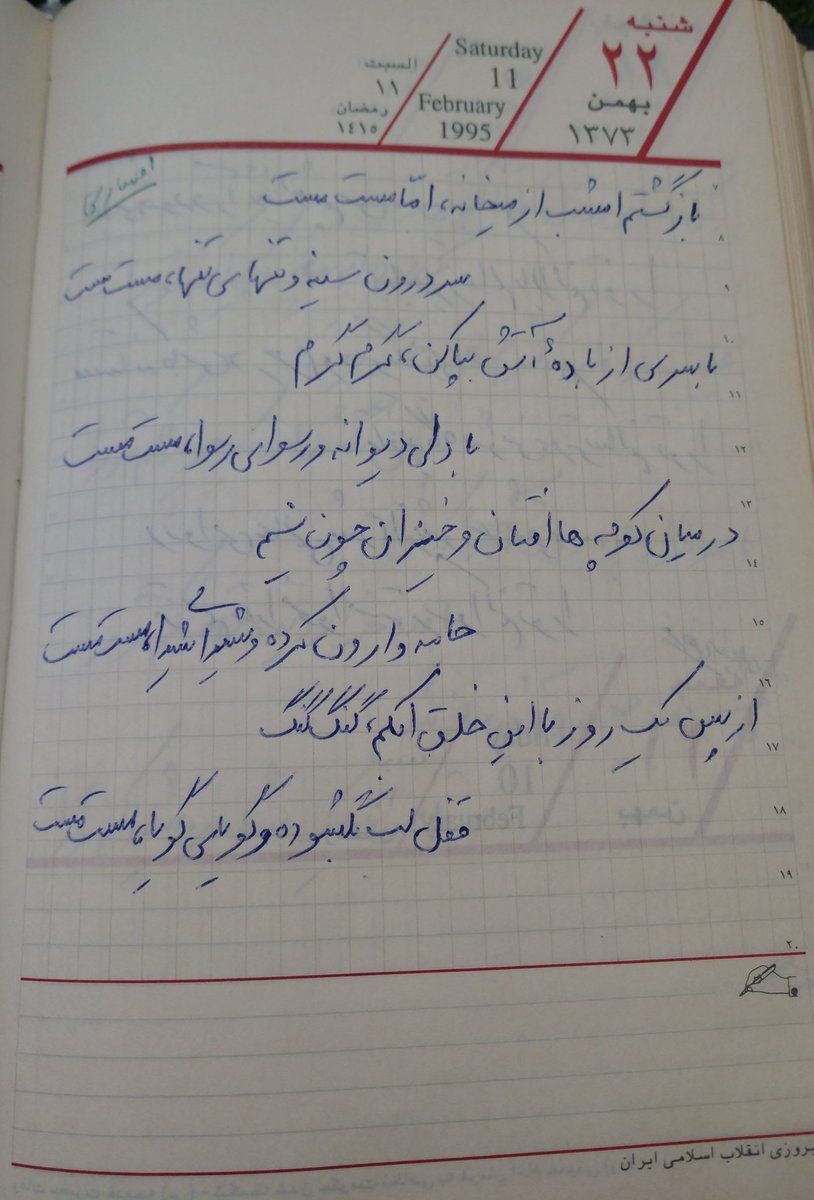 شنبه
۲۲
بهمن
۱۳۷۳
Saturday
11
February
1995
السبت
۱۱
رمضان
۱٤۱٥
بازگشتم امشب از میخانه، امّا مست مست
سر درون سینه و تنهای تنها، مست مست
با سری از بادهٔ آتش بپا کن، گرم گرم
با دلی دیوانه و رسوای رسوا، مست مست
در میان کوچه ها افتان و خیزان چون نسیم
جامه وارون کرده و شیدای شیدا، مست مست
از پس یک روز با این خلق ابکم، گنگ گنگ
قفل لب بگشوده و گویای گویا، مست مست
۸
۹
۱۰
۱۱
۱۲
۱۳
۱۴
۱۵
۱۶
۱۷
۱۸
۱۹
۲۰
پیروزی انقلاب اسلامی ایران